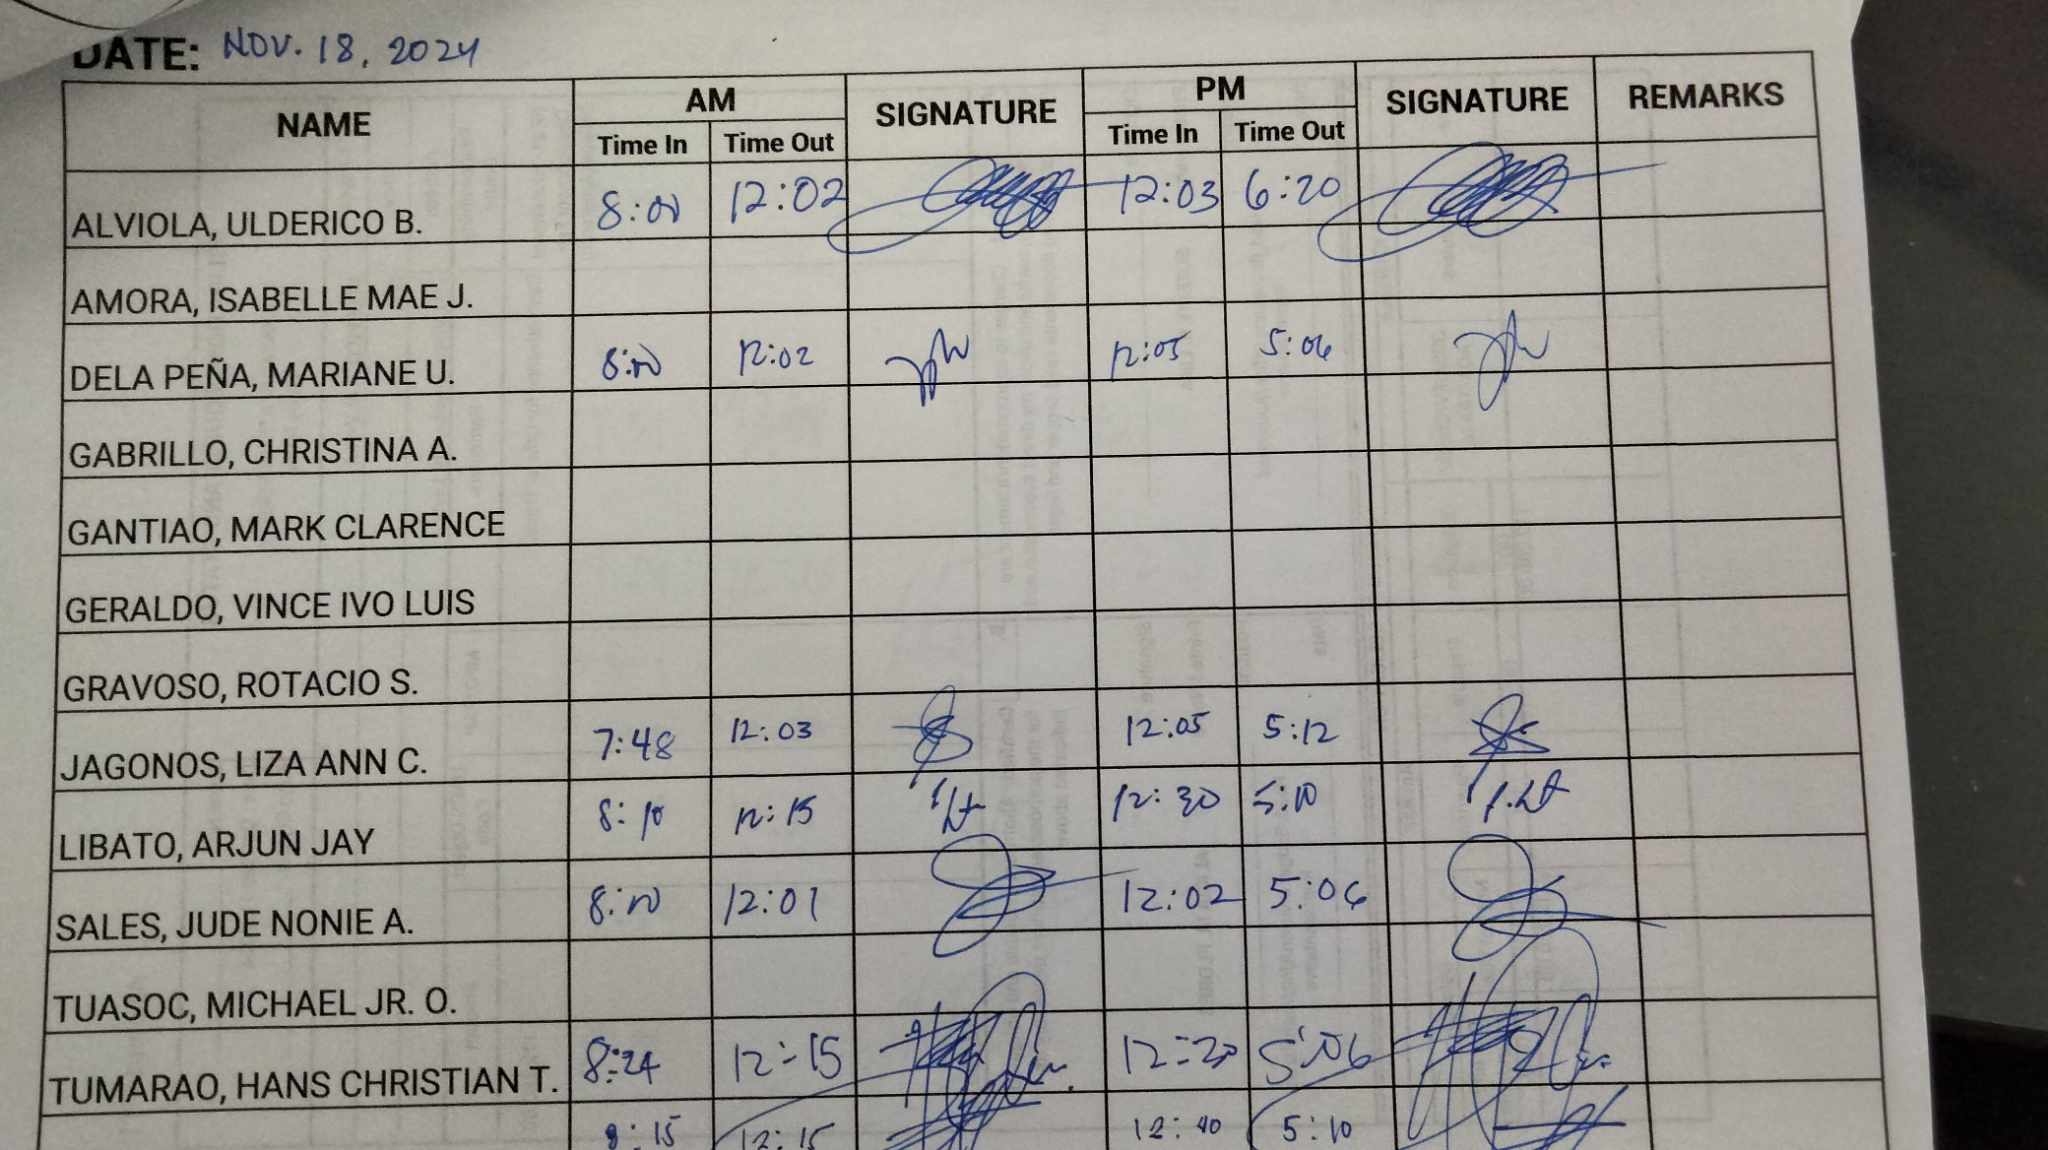 DATE: NOV. 18, 2024
NAME AM SIGNATURE PM SIGNATURE REMARKS
Time In Time Out Time In Time Out
ALVIOLA, ULDERICO B. 8:00 12:02 12:03 6:20
AMORA, ISABELLE MAE J.
DELA PEÑA, MARIANE U. 8:00 12:02 12:05 5:06
GABRILLO, CHRISTINA A.
GANTIAO, MARK CLARENCE
GERALDO, VINCE IVO LUIS
GRAVOSO, ROTACIO S.
JAGONOS, LIZA ANN C. 7:48 12:03 12:05 5:12
LIBATO, ARJUN JAY 8:10 12:15 12:30 5:10
SALES, JUDE NONIE A. 8:00 12:01 12:02 5:06
TUASOC, MICHAEL JR. O.
TUMARAO, HANS CHRISTIAN T. 8:24 12:15 12:20 5:06
8:15 12:15 5:10